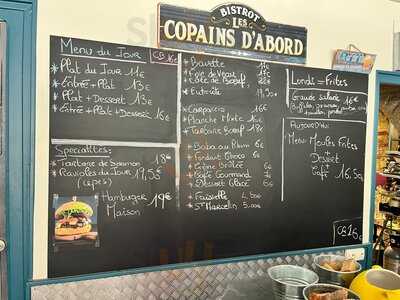 BISTROT
LES
COPAINS D'ABORD
Menu du Jour
CB 15€
* Plat du Jour 11€
* Entrée + Plat 13€
* Plat + Dessert 13€
* Entrée + Plat + Dessert 16€
Spécialités:
* Tartare de Saumon 18€
* Ravioles du Jour 17,55
(cèpes)
* Hamburger 19€
Maison
* Bavette 17€
* Foie de Veau
* Côte de Boeuf
* Entrecôte 19,90
* Carpaccio 16€
* Planche Mixte 16€
* Tartare Boeuf 18€
* Baba au Rhum 6€
* Fondant Choco 6€
* Crème Brûlée 6€
* Café Gourmand 7€
* Dessert Glacé 6€
* Faisselle 4.50€
* St Marcelin 5.00€
Lundis = Frites
Grande Salade 16€
AUJOURD'HUI
MENU Moules Frites
+
Dessert
+
Café 16.50€
CB 15€